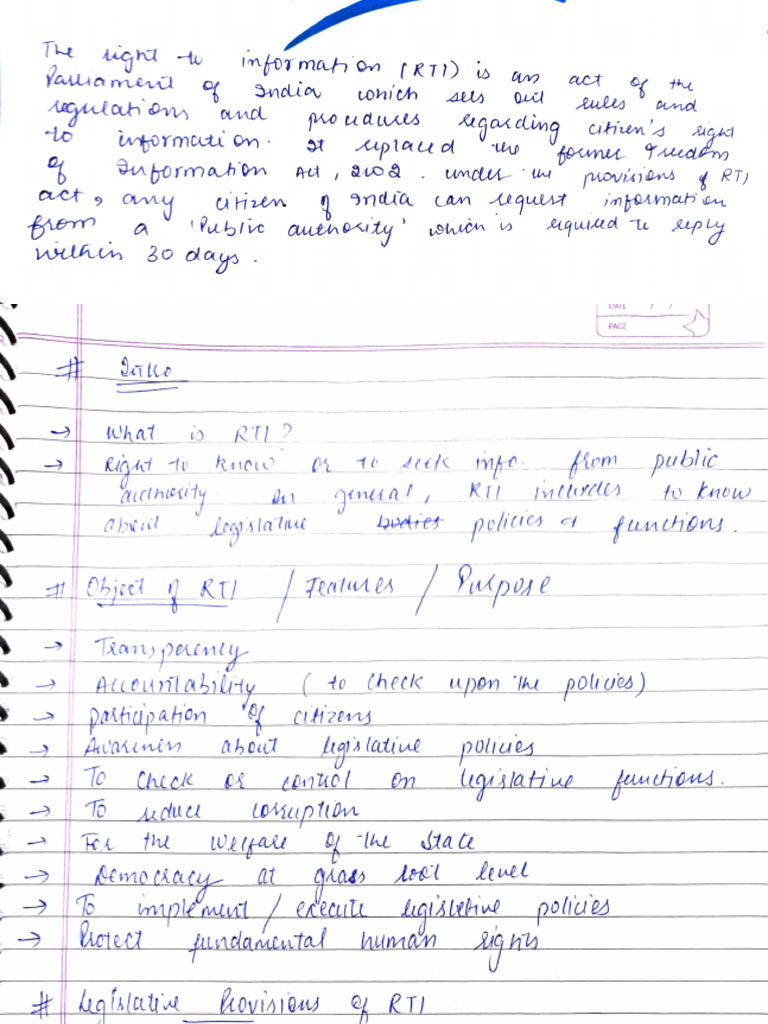 The right to information (RTI) is an act of the
Parliament of India which sets out rules and
regulations and procedures regarding citizen's right
to information. It replaced the former Freedom
of Information Act, 2002. under the provisions of RTI
act, any citizen of India can request information
from a 'Public authority' which is required to reply
within 30 days.
DATE / /
PAGE
# Intro
→ What is RTI?
→ Right to know or to seek info. from public
authority. In general, RTI includes to know
about legislative bodies policies & functions.
# Object of RTI / Features / Purpose
→ Transperency
→ Accountability ( to check upon the policies)
→ participation of citizens
→ Awareness about legislative policies
→ To check or control on legislative functions.
→ To reduce corruption
→ For the welfare of the State
→ Democracy at grass root level
→ To implement / execute legislative policies
→ Protect fundamental human rights
# Legislative Provisions of RTI